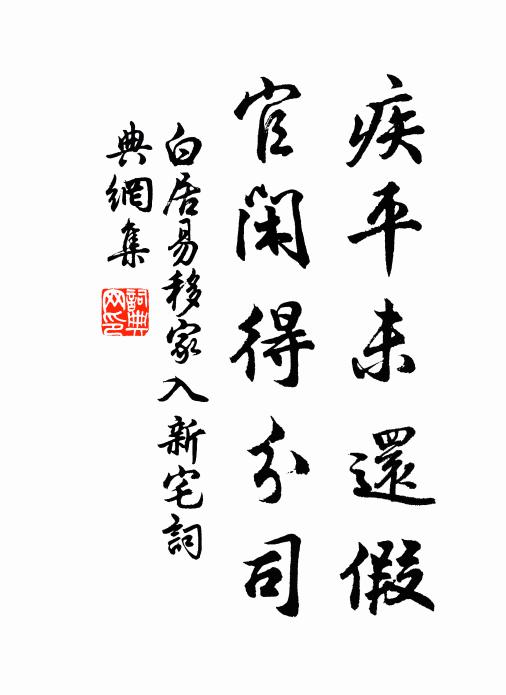 疾平未還假
官閑得分司
白居易移家入新宅詞
典網集
詞典網印